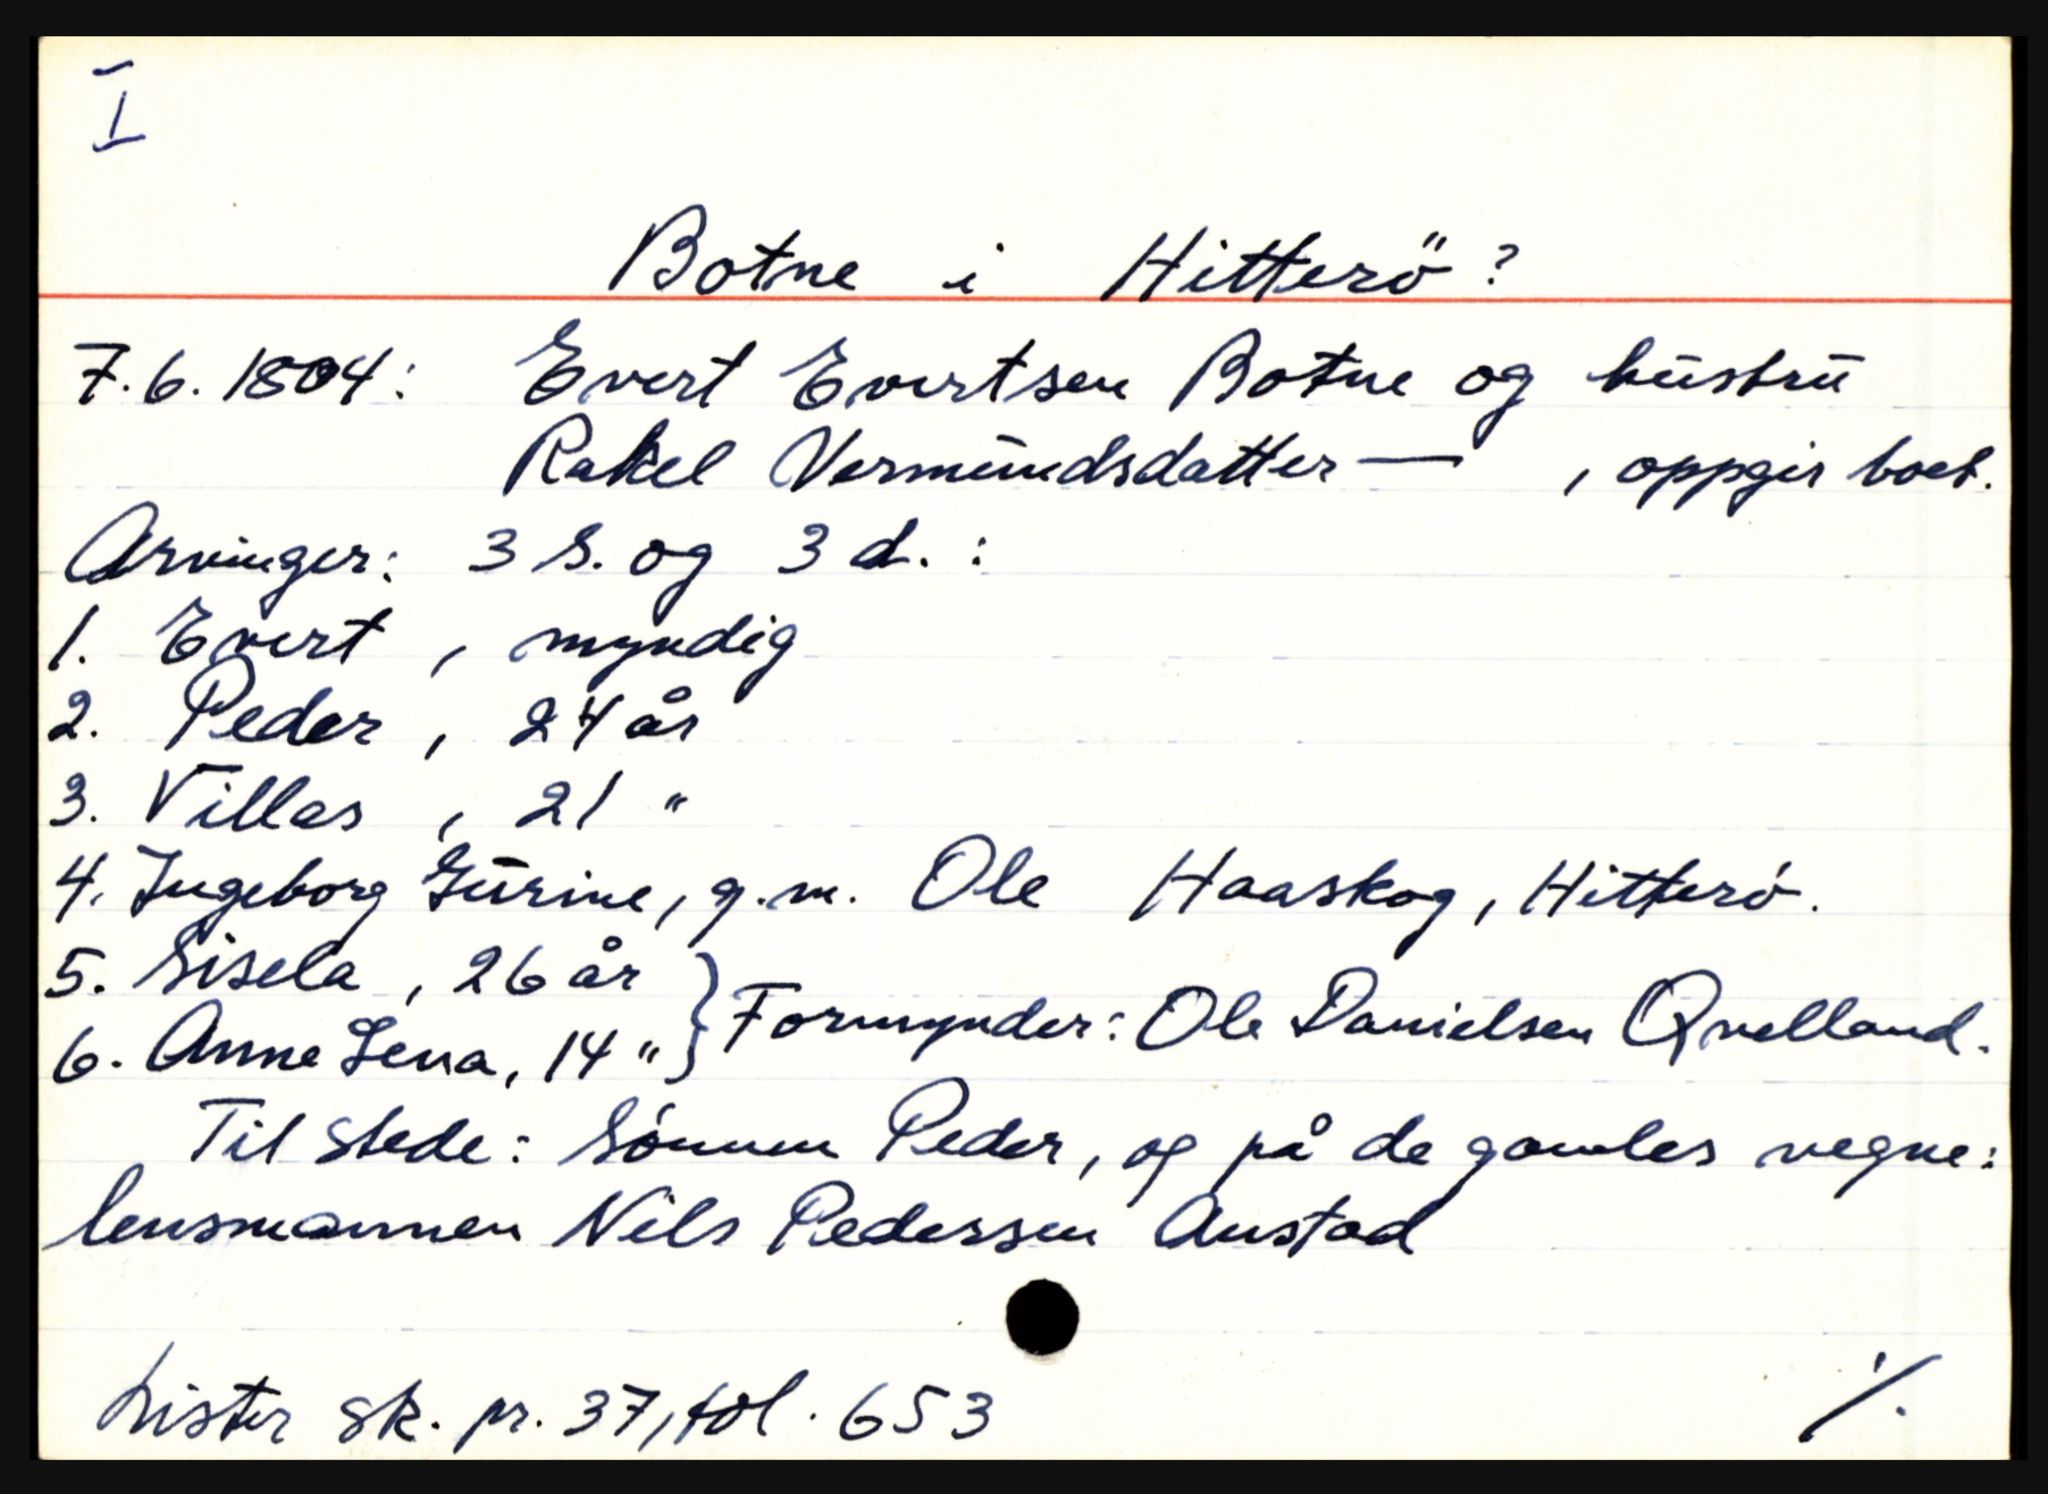 I
Botne i Hitterö?
7.6.1804: Evert Evertsen Botne og hustru
Rakel Vermundsdatter — , oppgir boet.
Arvinger: 3 s. og 3 d. :
1. Evert , myndig
2. Peder , 24 år
3. Villas , 21 "
4. Ingeborg Gurine, g.m. Ole Haaskog, Hitterö.
5. Sisela , 26 år
6. Anne Lena, 14 " } Formynder: Ole Danielsen Qvelland.
Til stede: Sønnen Peder, og på de gamles vegne:
lensmannen Nils Pederssen Austad
Lister sk. pr. 37, fol. 653
./.